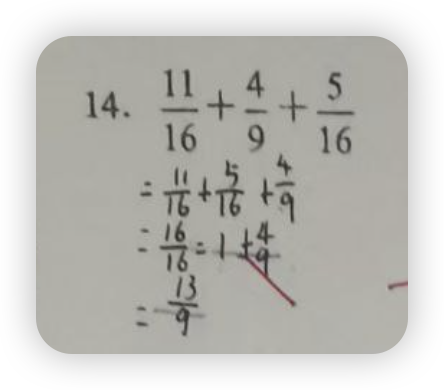 14. 11/16 + 4/9 + 5/16
= 11/16 + 5/16 + 4/9
= 16/16 = 1 + 4/9
= 13/9